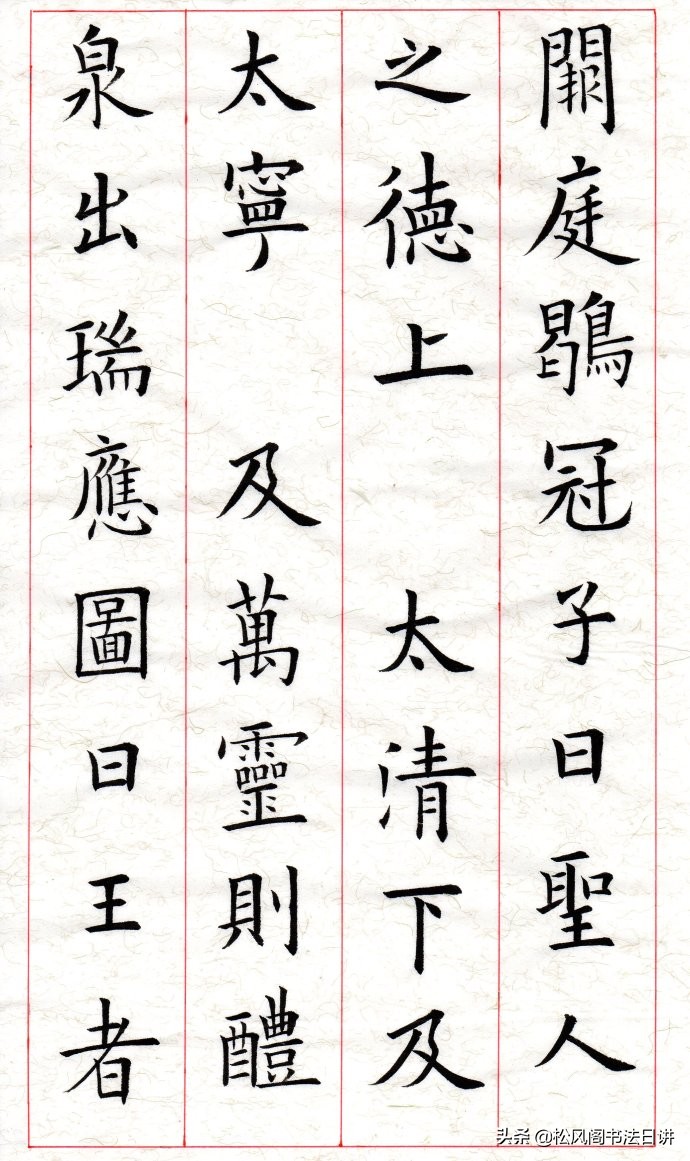 闕庭鶡冠子曰聖人
之德上太清下及
太寧及萬靈則醴
泉出瑞應圖曰王者
头条 @松风阁书法日讲